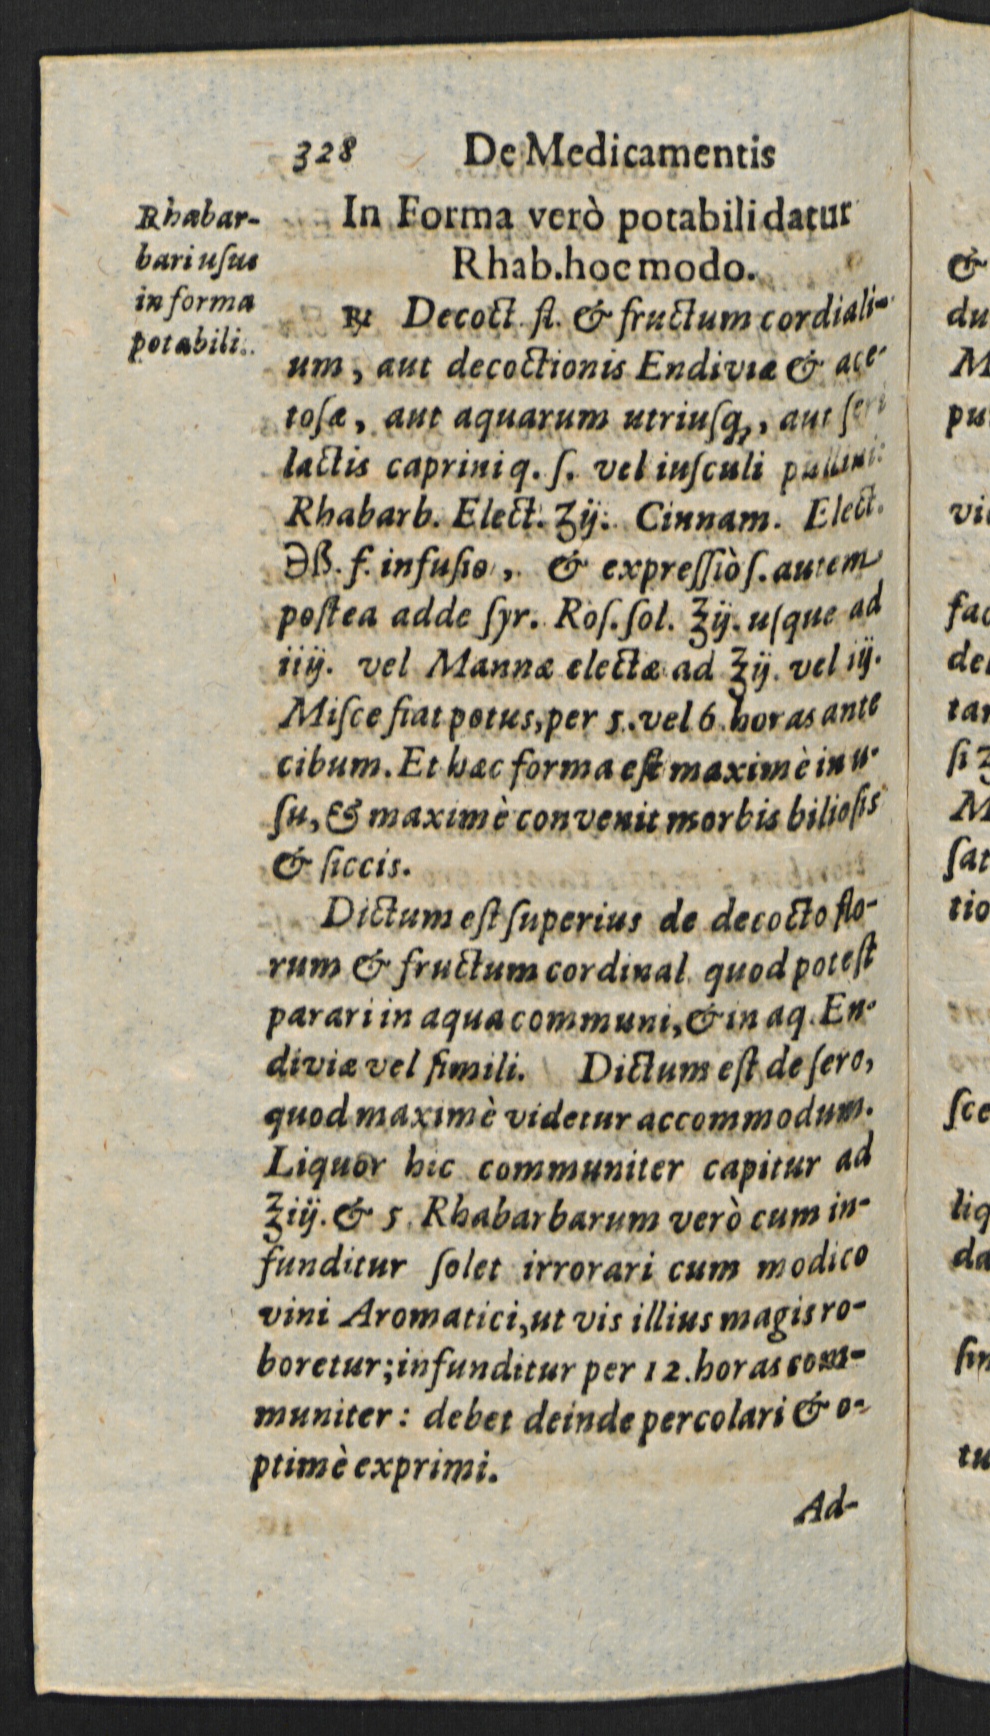 328 De Medicamentis
Rhabar-
bari uſus
in forma
potabili.
In Forma verò potabili datur
Rhab. hoc modo.
℞ Decoct. fl. & fructum cordiali-
um, aut decoctionis Endiviæ & ace-
toſæ, aut aquarum utriuſq,, aut ſeri
lactis caprini q. ſ. vel iuſculi pullini:
Rhabarb. Elect. ʒij. Cinnam. Elect.
℈ß. f. infuſio, & expreſſiò ſ. autem
poſtea adde ſyr. Roſ. ſol. ℥ij. uſque ad
iiij. vel Mannæ electæ ad ℥ij. vel iij.
Miſce fiat potus, per 5. vel 6. horas ante
cibum. Et hæc forma eſt maximè in u-
ſu, & maximè convenit morbis bilioſis
& ſiccis.
Dictum eſt ſuperius de decocto flo-
rum & fructum cordinal. quod poteſt
parari in aqua communi, & in aq. En-
diviæ vel ſimili. Dictum eſt de ſero,
quod maximè videtur accommodum.
Liquor hic communiter capitur ad
℥iij. & 5. Rhabarbarum verò cum in-
funditur ſolet irrorari cum modico
vini Aromatici, ut vis illius magis ro-
boretur; infunditur per 12. horas com-
muniter: debet deinde percolari & o-
ptimè exprimi.
Ad-
&
du
M
fac
tio
ſce
liq
da
tu